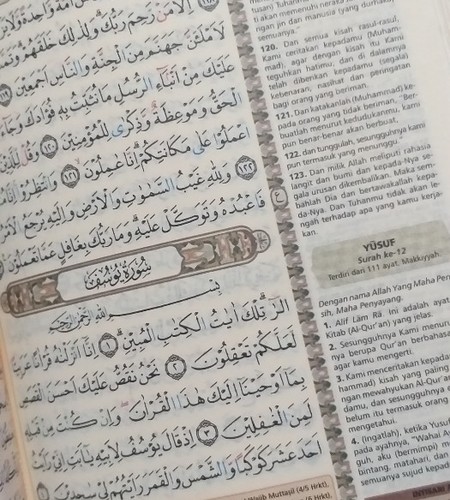 إِلَّا مَنْ رَحِمَ رَبُّكَ وَلِذَٰلِكَ خَلَقَهُمْ
لَأَمْلَئَنَّ جَهَنَّمَ مِنَ الْجِنَّةِ وَالنَّاسِ أَجْمَعِينَ ١١٩
عَلَيْكَ مِنْ أَنْبَاءِ الرُّسُلِ مَا نُثَبِّتُ بِهِ فُؤَادَكَ وَجَاءَ
الْحَقُّ وَمَوْعِظَةٌ وَذِكْرَىٰ لِلْمُؤْمِنِينَ ١٢٠ وَقُلْ لِلَّذِينَ
اعْمَلُوا عَلَىٰ مَكَانَتِكُمْ إِنَّا عَامِلُونَ ١٢١ وَانْتَظِرُوا إِنَّا
١٢٢ وَلِلَّهِ غَيْبُ السَّمَاوَاتِ وَالْأَرْضِ وَإِلَيْهِ يُرْجَعُ الْأَمْرُ
فَاعْبُدْهُ وَتَوَكَّلْ عَلَيْهِ وَمَا رَبُّكَ بِغَافِلٍ عَمَّا تَعْمَلُونَ
سُورَةُ يُوسُفَ
بِسْمِ اللَّهِ الرَّحْمَٰنِ الرَّحِيمِ
الر تِلْكَ آيَاتُ الْكِتَابِ الْمُبِينِ ١ إِنَّا أَنْزَلْنَاهُ قُرْآنًا عَرَبِيًّا
لَعَلَّكُمْ تَعْقِلُونَ ٢ نَحْنُ نَقُصُّ عَلَيْكَ أَحْسَنَ الْقَصَصِ
بِمَا أَوْحَيْنَا إِلَيْكَ هَٰذَا الْقُرْآنَ وَإِنْ كُنْتَ مِنْ قَبْلِهِ
لَمِنَ الْغَافِلِينَ ٣ إِذْ قَالَ يُوسُفُ لِأَبِيهِ يَا أَبَتِ إِنِّي رَأَيْتُ
أَحَدَ عَشَرَ كَوْكَبًا وَالشَّمْسَ وَالْقَمَرَ رَأَيْتُهُمْ لِي سَاجِدِينَ
ti) akan memenuhi neraka
ngan jin dan manusia (yang durhaka)
semuanya."
120. Dan semua kisah rasul-rasul,
Kami ceritakan kepadamu (Muham-
mad), agar dengan kisah itu Kami
teguhkan hatimu; dan di dalamnya
telah diberikan kepadamu (segala)
kebenaran, nasihat dan peringatan
bagi orang yang beriman.
121. Dan katakanlah (Muhammad) ke-
pada orang yang tidak beriman, "Ber-
buatlah menurut kedudukanmu, kami
pun benar-benar akan berbuat,
122. dan tunggulah, sesungguhnya kami
pun termasuk yang menunggu."
123. Dan milik Allah meliputi rahasia
langit dan bumi dan kepada-Nya se-
gala urusan dikembalikan. Maka sem-
bahlah Dia dan bertawakallah kepa-
da-Nya. Dan Tuhanmu tidak akan le-
ngah terhadap apa yang kamu kerja-
kan.
YŪSUF
Surah ke-12
Terdiri dari 111 ayat. Makkiyyah.
Dengan nama Allah Yang Maha Penga-
sih, Maha Penyayang.
1. Alif Lām Rā. Ini adalah ayat
Kitab (Al-Qur'an) yang jelas.
2. Sesungguhnya Kami menurun
nya berupa Qur'an berbahasa
agar kamu mengerti.
3. Kami menceritakan kepadamu
hammad) kisah yang paling
ngan mewahyukan Al-Qur'an
damu, dan sesungguhnya
belum itu termasuk orang
mengetahui.
4. (Ingatlah), ketika Yusuf
pada ayahnya, "Wahai Ay
guh, aku (bermimpi) me
bintang, matahari, dan
semuanya sujud kepad
Wajib Muttaṣil (4/5 Hrkt),